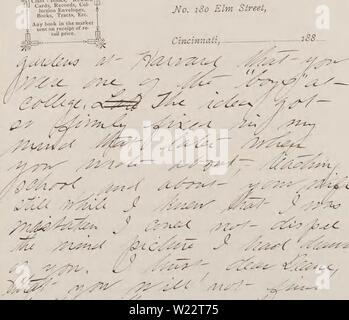 Cards, Records, Col-
lection Envelopes,
Books, Tracts, Etc.
Any book in the market
sent on receipt of re-
tail price.
No. 180 Elm Street,
Cincinnati, 188
gardens at Harvard that you
were one of the "boys" at
college. The idea got
so firmly fixed in my
mind that later when
you wrote about teaching
school and about your wife
still while I knew that I was
mistaken I could not dispel
the mind picture I had drawn
of you. I trust, dear
that you will not
alamy
Image ID: W22T75
www.alamy.com